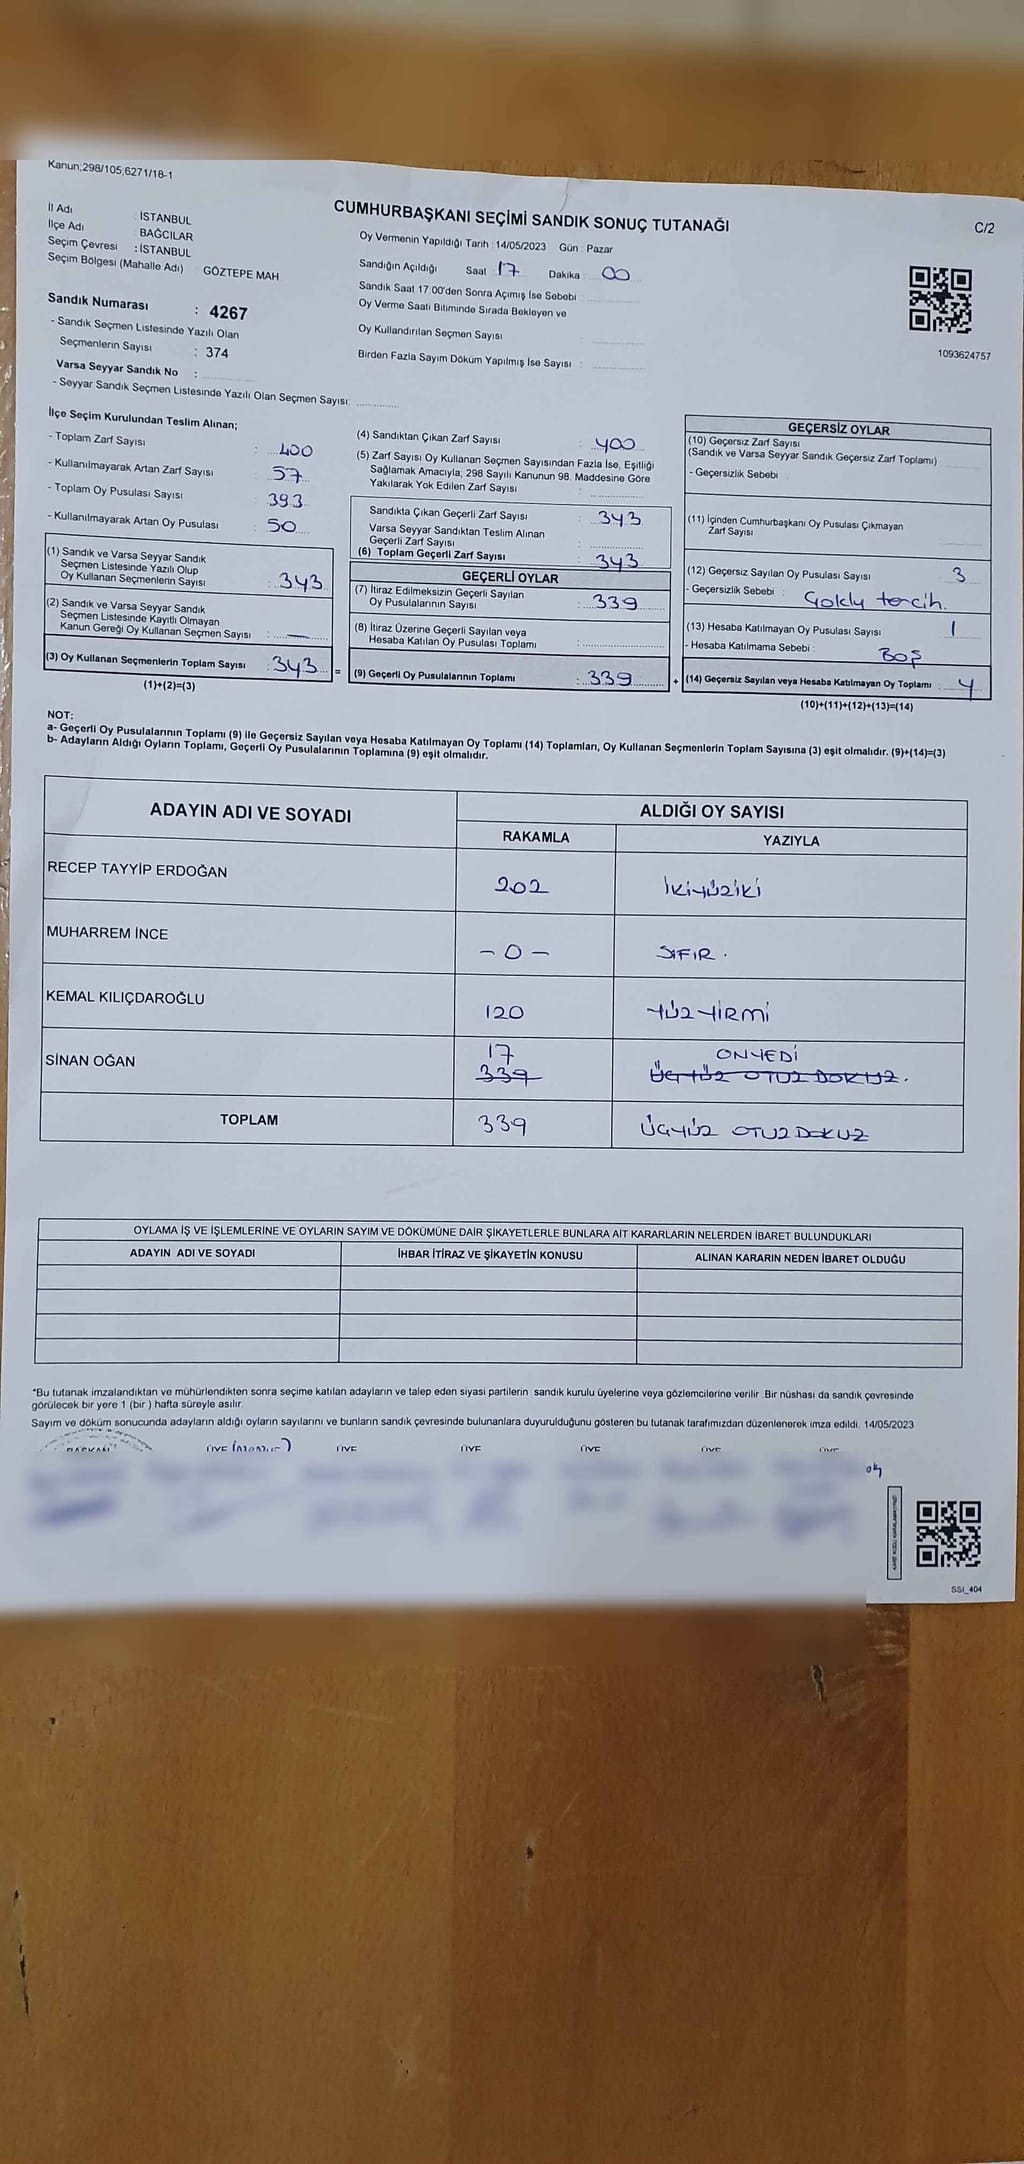 Kanun;298/105;6271/18-1
CUMHURBAŞKANI SEÇİMİ SANDIK SONUÇ TUTANAĞI
C/2
İl Adı : İSTANBUL
İlçe Adı : BAĞCILAR
Seçim Çevresi : İSTANBUL
Seçim Bölgesi (Mahalle Adı) : GÖZTEPE MAH
Oy Vermenin Yapıldığı Tarih :14/05/2023 Gün : Pazar
Sandığın Açıldığı Saat 17 Dakika 00
Sandık Saat 17:00'den Sonra Açımış İse Sebebi
Oy Verme Saati Bitiminde Sırada Bekleyen ve
Oy Kullandırılan Seçmen Sayısı :
Birden Fazla Sayım Döküm Yapılmış İse Sayısı :
1093624757
Sandık Numarası : 4267
- Sandık Seçmen Listesinde Yazılı Olan
Seçmenlerin Sayısı : 374
Varsa Seyyar Sandık No :
- Seyyar Sandık Seçmen Listesinde Yazılı Olan Seçmen Sayısı:
İlçe Seçim Kurulundan Teslim Alınan;
- Toplam Zarf Sayısı : 400
- Kullanılmayarak Artan Zarf Sayısı : 57
- Toplam Oy Pusulası Sayısı : 393
- Kullanılmayarak Artan Oy Pusulası : 50
(1) Sandık ve Varsa Seyyar Sandık
Seçmen Listesinde Yazılı Olup
Oy Kullanan Seçmenlerin Sayısı : 343
(2) Sandık ve Varsa Seyyar Sandık
Seçmen Listesinde Kayıtlı Olmayan
Kanun Gereği Oy Kullanan Seçmen Sayısı : —
(3) Oy Kullanan Seçmenlerin Toplam Sayısı : 343 =
(1)+(2)=(3)
(4) Sandıktan Çıkan Zarf Sayısı : 400
(5) Zarf Sayısı Oy Kullanan Seçmen Sayısından Fazla İse, Eşitliği
Sağlamak Amacıyla; 298 Sayılı Kanunun 98. Maddesine Göre
Yakılarak Yok Edilen Zarf Sayısı :
Sandıkta Çıkan Geçerli Zarf Sayısı : 343
Varsa Seyyar Sandıktan Teslim Alınan
Geçerli Zarf Sayısı :
(6) Toplam Geçerli Zarf Sayısı : 343
GEÇERLİ OYLAR
(7) İtiraz Edilmeksizin Geçerli Sayılan
Oy Pusulalarının Sayısı : 339
(8) İtiraz Üzerine Geçerli Sayılan veya
Hesaba Katılan Oy Pusulası Toplamı :
(9) Geçerli Oy Pusulalarının Toplamı : 339 +
GEÇERSİZ OYLAR
(10) Geçersiz Zarf Sayısı
(Sandık ve Varsa Seyyar Sandık Geçersiz Zarf Toplamı)
- Geçersizlik Sebebi :
(11) İçinden Cumhurbaşkanı Oy Pusulası Çıkmayan
Zarf Sayısı
(12) Geçersiz Sayılan Oy Pusulası Sayısı 3
- Geçersizlik Sebebi : tercih.
(13) Hesaba Katılmayan Oy Pusulası Sayısı 1
- Hesaba Katılmama Sebebi : BOŞ
(14) Geçersiz Sayılan veya Hesaba Katılmayan Oy Toplamı : 4
(10)+(11)+(12)+(13)=(14)
NOT:
a- Geçerli Oy Pusulalarının Toplamı (9) ile Geçersiz Sayılan veya Hesaba Katılmayan Oy Toplamı (14) Toplamları, Oy Kullanan Seçmenlerin Toplam Sayısına (3) eşit olmalıdır. (9)+(14)=(3)
b- Adayların Aldığı Oyların Toplamı, Geçerli Oy Pusulalarının Toplamına (9) eşit olmalıdır.
ADAYIN ADI VE SOYADI
ALDIĞI OY SAYISI
RAKAMLA YAZIYLA
RECEP TAYYİP ERDOĞAN 202 İKİYÜZİKİ
MUHARREM İNCE - 0 - SIFIR.
KEMAL KILIÇDAROĞLU 120 YÜZYİRMİ
SİNAN OĞAN 17 ONYEDİ
339 ÜÇYÜZ OTUZ DOKUZ.
TOPLAM 339 ÜÇYÜZ OTUZ DOKUZ
OYLAMA İŞ VE İŞLEMLERİNE VE OYLARIN SAYIM VE DÖKÜMÜNE DAİR ŞİKAYETLERLE BUNLARA AİT KARARLARIN NELERDEN İBARET BULUNDUKLARI
ADAYIN ADI VE SOYADI İHBAR İTİRAZ VE ŞİKAYETİN KONUSU ALINAN KARARIN NEDEN İBARET OLDUĞU
*Bu tutanak imzalandıktan ve mühürlendikten sonra seçime katılan adayların ve talep eden siyasi partilerin sandık kurulu üyelerine veya gözlemcilerine verilir .Bir nüshası da sandık çevresinde
görülecek bir yere 1 (bir ) hafta süreyle asılır.
Sayım ve döküm sonucunda adayların aldığı oyların sayılarını ve bunların sandık çevresinde bulunanlara duyurulduğunu gösteren bu tutanak tarafımızdan düzenlenerek imza edildi. 14/05/2023
BAŞKAN ÜYE ÜYE ÜYE ÜYE ÜYE ÜYE
SSI_404